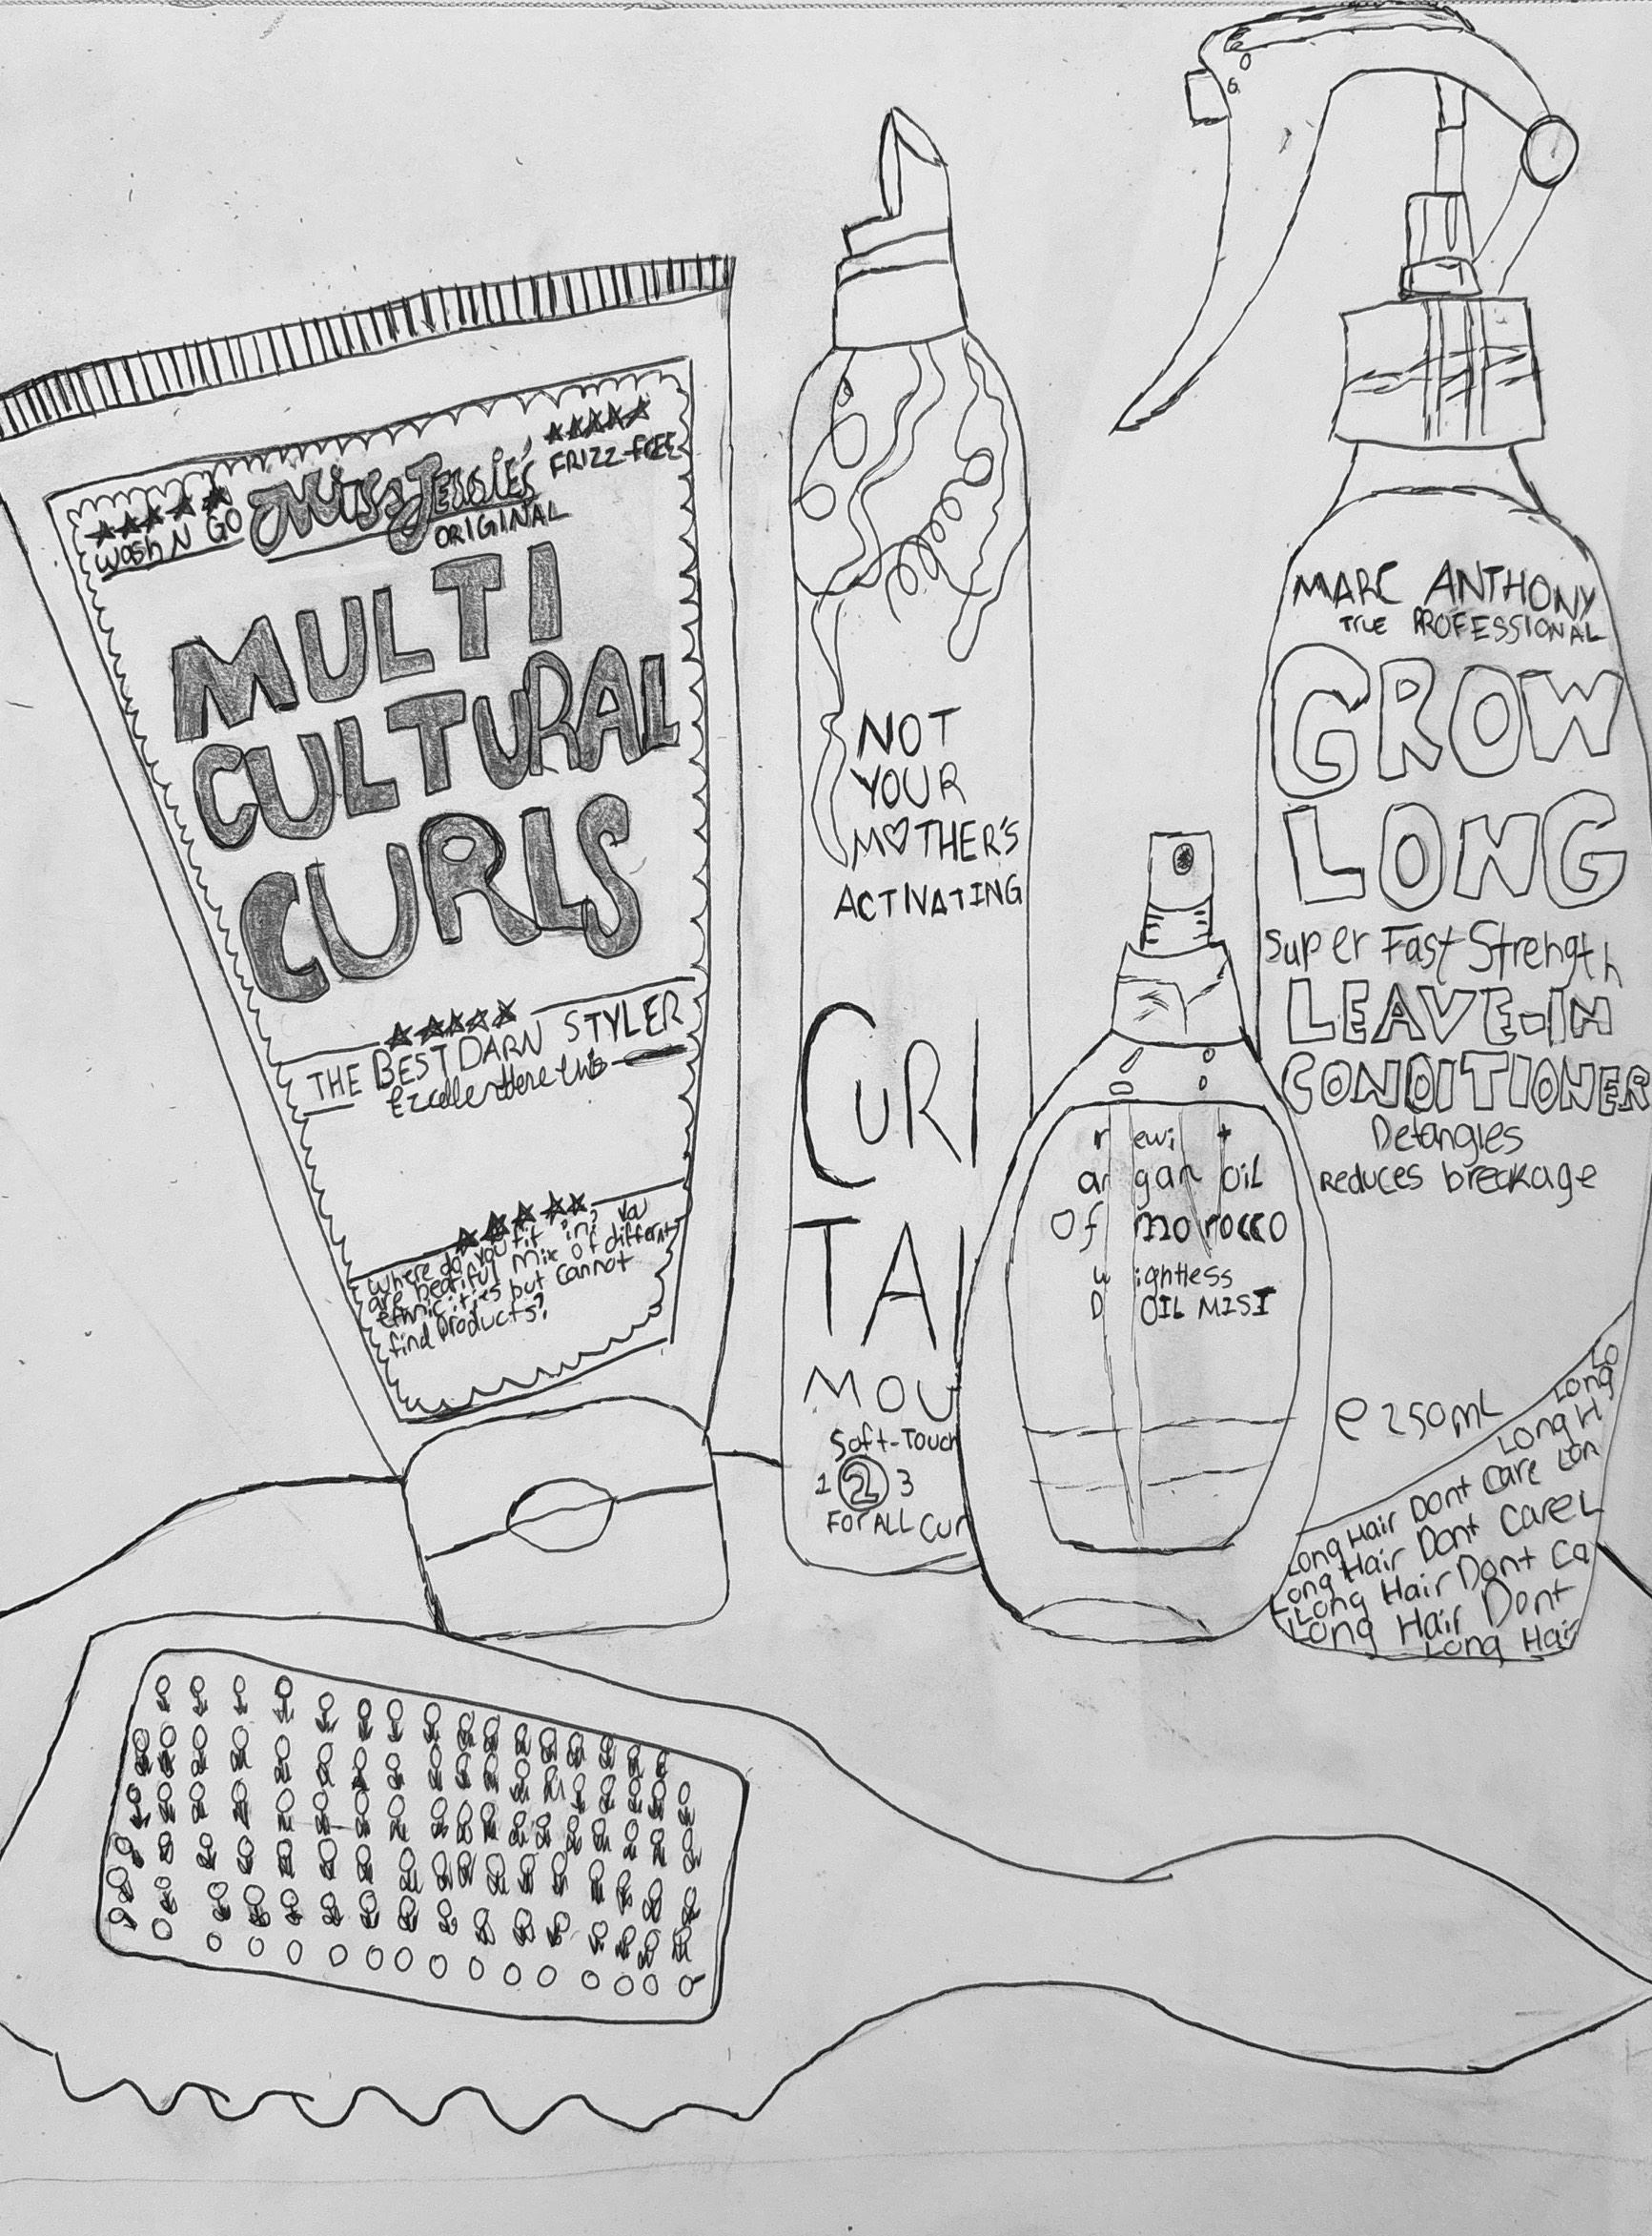 Wash N GO
Miss Jessie's
FRIZZ-FREE
ORIGINAL
MULTI
CULTURAL
CURLS
THE BEST DARN STYLER
Where do you fit "in" You
are beatiful mix of different
ethnicities but cannot
find products?
NOT
YOUR
M♡THER'S
ACTIVATING
CURl
TAl
MOU
Soft-Touch
1 2 3
FOR ALL Cur
r ewi +
argan oil
Of morocco
w ightless
D OIL MIST
MARC ANTHONY
TrUE PROFESSIONAL
GROW
LONG
Super Fast Strength
LEAVE-IN
CONDITIONER
Detangles
Reduces breakage
e 250mL
Lo
Long
Long H
Long Hair Dont Care Lon
ong Hair Dont Care L
Long Hair Dont Ca
Long Hair Dont
Long Hair